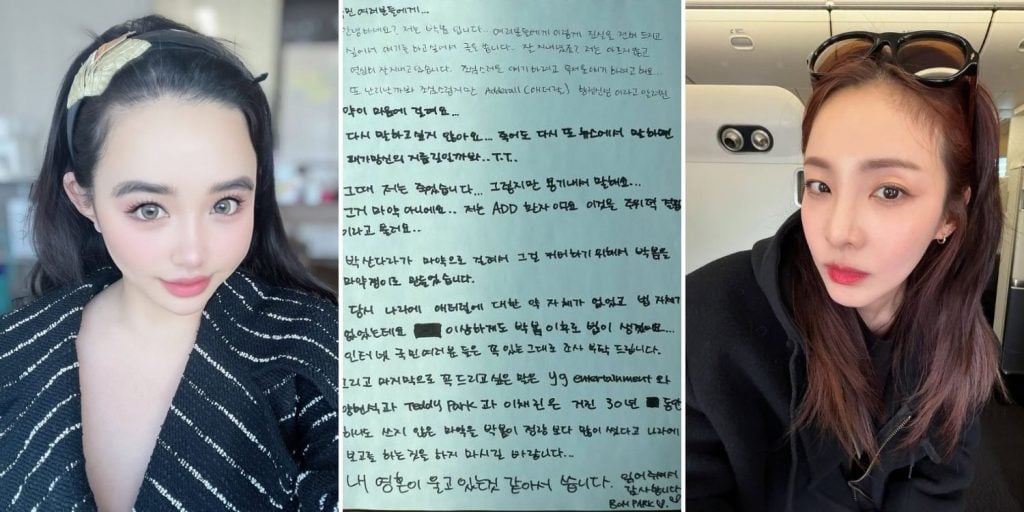 국민 여러분들에게...
안녕하세요? 저는 박봄 입니다.. 여러분들에게 이렇게 진심을 전해 드리고
싶어서 얘기를 하고싶어서 글을 씁니다. 잘 지내셨죠? 저는 아프지않고
열심히 잘지내고 있습니다. 조심스러운 얘기 하려고
또 난리난가봐 조심스럽지만 Adderall (애더럴)
많이 마음에 걸려요...
다시 말하고싶지 않아요... 죽어도 다시 또 뉴스에서 말하면
패가망신의 지름길일까봐..T.T.
그때 저는 죽었습니다... 그렇지만 용기내서 말해요...
그거 마약 아니에요.. 저는 ADD 환자 에요 이것을 주위력 결핍
이라고 불러요..
박산다라가 마약으로 걸려서 그걸 커버하기 위해서 박봄을
마약쟁이로 만들었습니다.
당시 나라에 애더럴에 대한 약 자체가 없었고 법 자체가
없었는데요 이상하게도 박봄 이후로 법이 생겼어요...
인터넷 국민여러분 들은 꼭 있는그대로 조사 부탁 드립니다.
그리고 마지막으로 꼭드리고 싶은 말은 yg entertainment 와
양현석과 Teddy Park 과 이채린은 거진 30년 동안
하나도 쓰지 않은 마약을 박봄이 정량 보다 많이 썼다고 나라에
보고를 하는짓을 하지 마시길 바랍니다...
내 영혼이 울고 있는것 같아서 씁니다. 읽어주셔서
감사합니다
BOM PARK